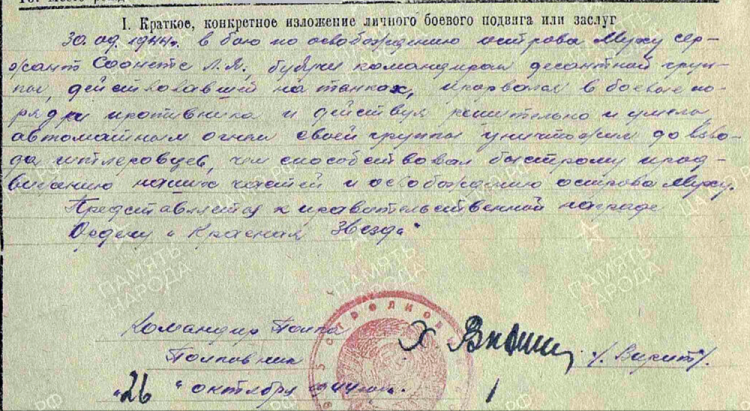 I. Краткое, конкретное изложение личного боевого подвига или заслуг
30.09.1944г. в бою по освобождению острова Муху сер-
жант Л.Я. будучи командиром десантной груп-
пы, действовавшей на танках, прорвался в боевые по-
рядки противника и действуя решительно и умело,
автоматным огнем своей группы уничтожил до взво-
да гитлеровцев, чем способствовал быстрому прод-
виганию наших частей и освобождению острова Муху.
Представляется к правительственной награде
Ордену „Красная Звезда"
ПАМЯТЬ
НАРОДА
Командир Полка
Полковник
"26" октября 1944г.